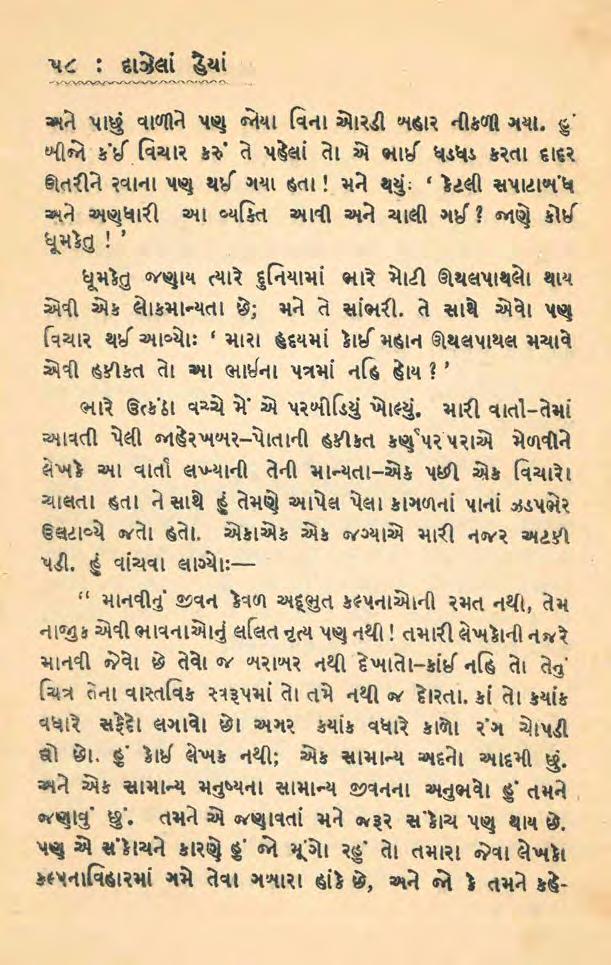 ૫૮ : દાઝેલાં હૈયાં
અને પાછું વાળીને પણ જોયા વિના ઓરડી બહાર નીકળી ગયા. હું
બીજો કંઈ વિચાર કરું તે પહેલાં તો એ ભાઈ ધડધડ કરતા દાદર
ઊતરીને રવાના પણ થઈ ગયા હતા! મને થયુંઃ ‘ કેટલી સપાટાબંધ
અને અણધારી આ વ્યક્તિ આવી અને ચાલી ગઈ? જાણે કોઈ
ધૂમકેતુ ! ’
ધૂમકેતુ જણાય ત્યારે દુનિયામાં ભારે મોટી ઊથલપાથલો થાય
એવી એક લોકમાન્યતા છે; મને તે સાંભરી. તે સાથે એવો પણ
વિચાર થઈ આવ્યોઃ ‘ મારા હૃદયમાં કોઈ મહાન ઊથલપાથલ મચાવે
એવી હકીકત તો આ ભાઈના પત્રમાં નહિ હોય ? ’
ભારે ઉત્કંઠા વચ્ચે મેં એ પરબીડિયું ખોલ્યું. મારી વાર્તા–તેમાં
આવતી પેલી જાહેરખબર–પોતાની હકીકત કર્ણપરંપરાએ મેળવીને
લેખકે આ વાર્તા લખ્યાની તેની માન્યતા–એક પછી એક વિચારો
ચાલતા હતા ને સાથે હું તેમણે આપેલ પેલા કાગળનાં પાનાં ઝડપભેર
ઉલટાવ્યે જતો હતો. એકાએક એક જગ્યાએ મારી નજર અટકી
પડી. હું વાંચવા લાગ્યોઃ—
“ માનવીનું જીવન કેવળ અદ્ભુત કલ્પનાઓની રમત નથી, તેમ
નાજુક એવી ભાવનાઓનું લલિત નૃત્ય પણ નથી! તમારી લેખકોની નજરે
માનવી જેવો છે તેવો જ બરાબર નથી દેખાતો–કાંઈ નહિ તો તેનું
ચિત્ર તેના વાસ્તવિક સ્વરૂપમાં તો તમે નથી જ દોરતા. કાં તો કયાંક
વધારે સફેદો લગાવો છો અગર કયાંક વધારે કાળો રંગ ચોપડી
દ્યો છો. હું કોઈ લેખક નથી; એક સામાન્ય અદનો આદમી છું.
અને એક સામાન્ય મનુષ્યના સામાન્ય જીવનના અનુભવો હું તમને
જણાવું છું. તમને એ જણાવતાં મને જરૂર સંકોચ પણ થાય છે.
પણ એ સંકોચને કારણે હું જો મૂંગો રહું તો તમારા જેવા લેખકો
કલ્પનાવિહારમાં ગમે તેવા ગબારા હાંકે છે, અને જો કે તમને કહે-